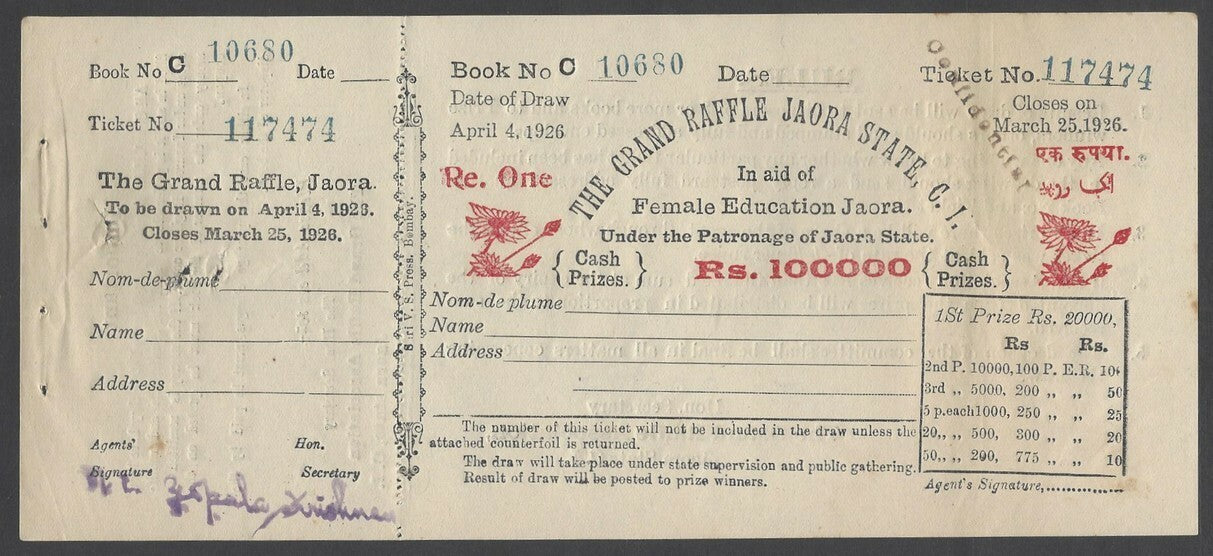 Book No C 10680 Date
Ticket No 117474
The Grand Raffle, Jaora.
To be drawn on April 4, 1926.
Closes March 25, 1926.
Nom-de-plume
Name
Address
Agents' Hon.
Signature Secretary
Gopala Krishnan
Sri V. S. Press. Bombay.
Book No C 10680 Date Ticket No. 117474
Confidential
Date of Draw
April 4, 1926
Closes on
March 25, 1926.
THE GRAND RAFFLE JAORA STATE, C. I.
एक रुपया.
Re. One
In aid of
Female Education Jaora.
Under the Patronage of Jaora State.
{ Cash Prizes. } Rs. 100000 { Cash Prizes. }
Nom-de plume
Name
Address
1St Prize Rs. 20000,
Rs Rs.
2nd P. 10000, 100 P. E.R. 10
3rd „ 5000, 200 „ „ 50
5 p.each 1000, 250 „ „ 25
20„ „ 500, 300 „ „ 20
50„ „ 200, 775 „ „ 10
The number of this ticket will not be included in the draw unless the
attached counterfoil is returned.
The draw will take place under state supervision and public gathering.
Result of draw will be posted to prize winners.
Agent's Signature,